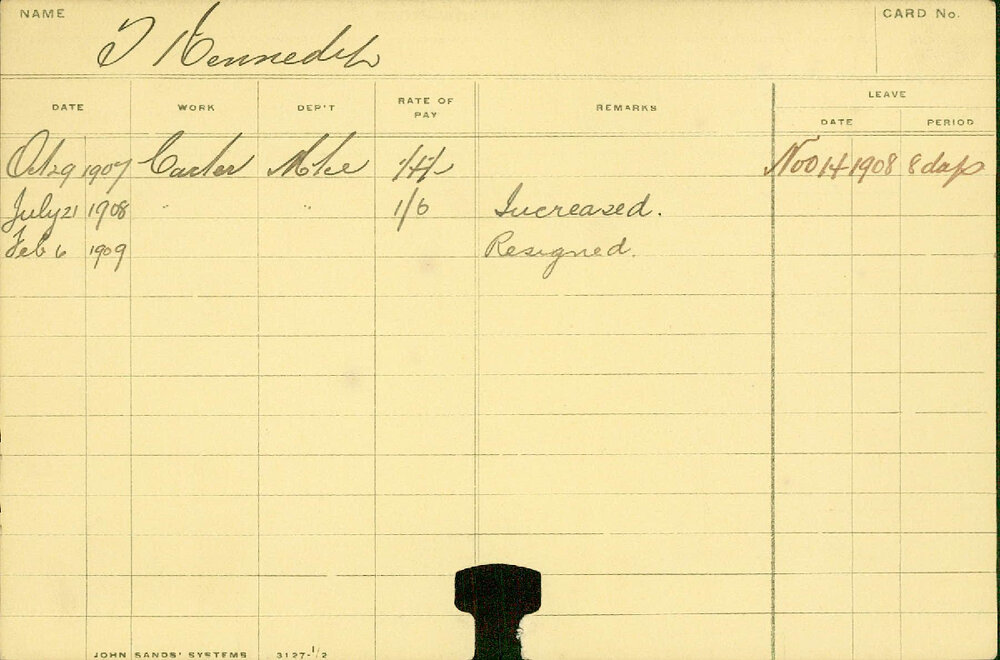 NAME
CARD No.
T Kennedy
DATE WORK DEP'T RATE OF PAY REMARKS LEAVE
DATE PERIOD
Oct 29 1907 Carter Mtce 1/4 Nov 14 1908 8 days
July 21 1908 " " 1/6 Increased.
Feb 6 1909 Resigned.
JOHN SANDS' SYSTEMS 3127-1/2